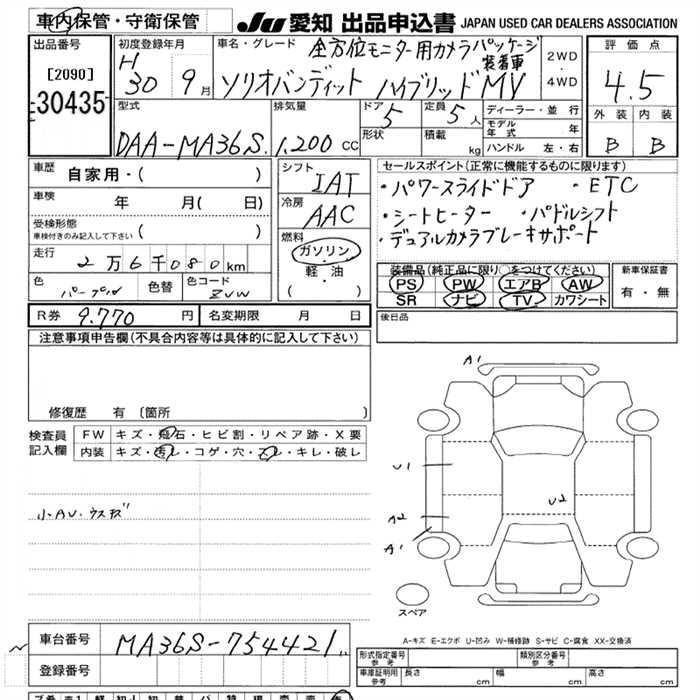 車内保管・守衛保管
JU 愛知 出品申込書 JAPAN USED CAR DEALERS ASSOCIATION
出品番号
[2090]
30435
初度登録年月
H
30 9 月
車名・グレード 全方位モニター用カメラパッケージ
装着車
ソリオバンディット ハイブリッドMV
2WD
・
4WD
評価点
4.5
外装 内装
B B
型式
DAA-MA36S
排気量
1,200 cc
ドア
5
形状
定員
5 人
積載
kg
ディーラー・並行
モデル
年式 年
ハンドル 左・右
車歴
自家用・( )
車検
年 月( 日)
受検形態
車検付きのみ記入して下さい ( )
走行
2万6千080km
色
パープル
色替
色コード
ZVW
シフト
IAT
冷房
AAC
燃料
ガソリン
・
軽・油
( )
セールスポイント(正常に機能するものに限ります)
・パワースライドドア ・ETC
・シートヒーター ・パドルシフト
・デュアルカメラブレーキサポート
装備品(純正品に限り○をつけてください)
PS PW エアB AW
SR ナビ TV カワシート
新車保証書
有・無
R券 9.770 円 名変期限 月 日
後日品
注意事項申告欄(不具合内容等は具体的に記入して下さい)
修復歴 有〔箇所 〕
検査員
記入欄
FW キズ・飛石・ヒビ割・リペア跡・X要
内装 キズ・汚レ・コゲ・穴・スレ・キレ・破レ
小AU・ウスキズ
A1
U1
U2
A2
A1
スペア
A-キズ E-エクボ U-凹み W-補修跡 S-サビ C-腐食 XX-交換済
車台番号 MA36S-754421
登録番号
形式指定番号
参考
類別区分番号
参考
車庫証明用
参考
長さ cm 幅 cm 高さ cm